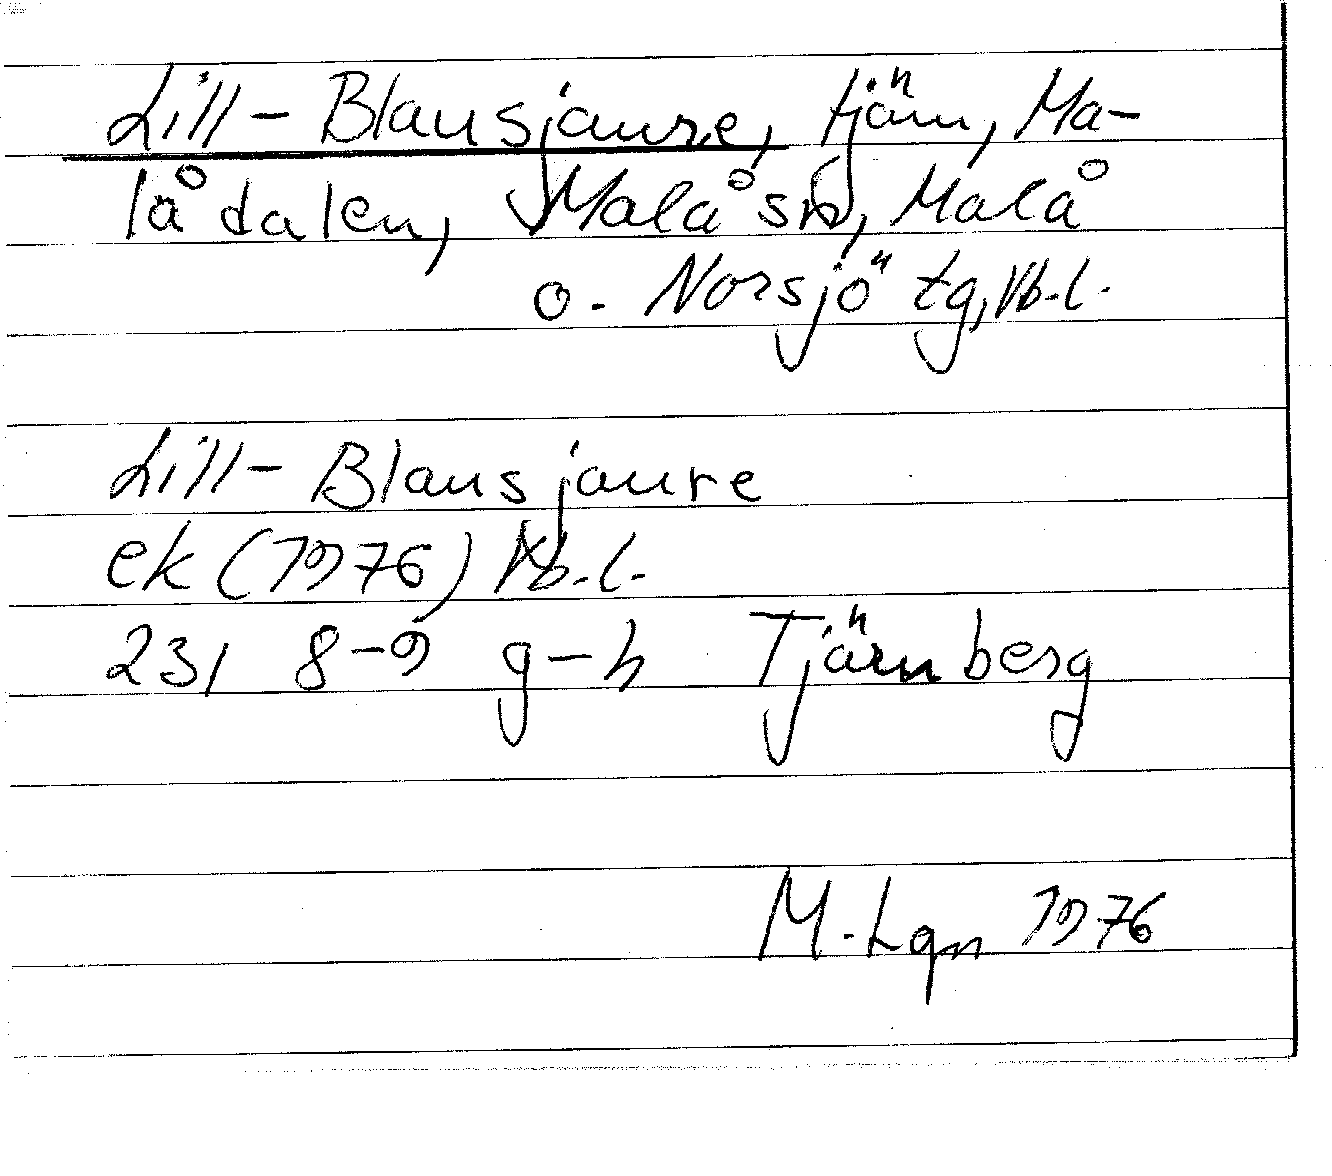 Lill-Blausjaure, tjärn, Ma-
lådalen, Malå sn, Malå
o. Norsjö tg, Vb.l.
Lill-Blausjaure
ek (1976) Vb.l.
23I 8-9 g-h Tjärnberg
M. Lgn 1976